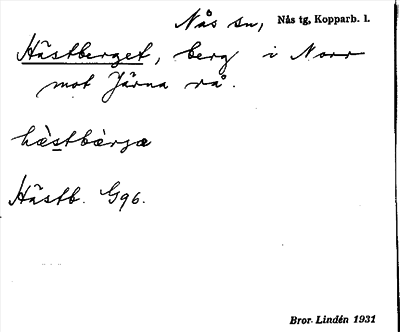 Nås sn, Nås tg, Kopparb. l.
Hästberget, berg i Norr
mot Järna rå.
hæ̀stbæ̀rjæ
Hästb. G96.
Bror Lindén 1931